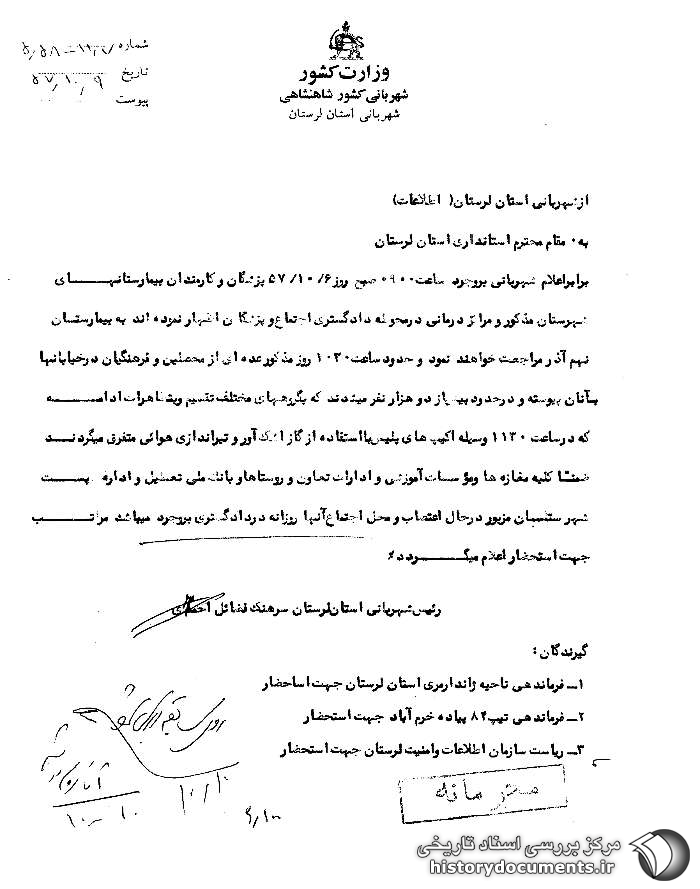 وزارت کشور
شهربانی کشور شاهنشاهی
شهربانی استان لرستان
شماره
تاریخ ۵۷/۱۰/۹
پیوست
از شهربانی استان لرستان( اطلاعات)
به۰ مقام محترم استانداری استان لرستان
برابر اعلام شهربانی بروجرد ساعت ۰۹۰۰ صبح روز ۶/ ۱۰/ ۵۷ پزشکان و کارمندان بیمارستانهــای
شهرستان مذکور و مراکز درمانی در محوطه دادگستری اجتماع و پزشکان اظهار نموده اند به بیمارستان
نهم آذر مراجعت خواهند نمود و حدود ساعت ۱۰۳۰ روز مذکور عده ای از محصلین و فرهنگیان در خیابانها
بآنان پیوسته و در حدود بیش از دو هزار نفر میشدند که بگروههای مختلف تقسیم و بتظاهرات ادامــه
که در ساعت ۱۱۳۰ وسیله اکیپ های پلیس با استفاده از گاز اشک آور و تیراندازی هوائی متفرق میگردنــد
ضمنا کلیه مغازه ها و مؤسسات آموزشی و ادارات تعاون و روستاها و بانک ملی تعطیل و اداره پســت
شهرستان مزبور در حال اعتصاب و محل اجتماع آنها روزانه در دادگستری بروجرد میباشد مراتــب
جهت استحضار اعلام میگـــردد٪
رئیس شهربانی استان لرستان سرهنگ فضائل احمدی
گیرندگان :
۱ـ فرماندهی ناحیه ژاندارمری استان لرستان جهت استحضار
۲ـ فرماندهی تیپ ۸۴ پیاده خرم آباد جهت استحضار
۳ـ ریاست سازمان اطلاعات و امنیت لرستان جهت استحضار
محرمانه
۱۰/۱۰
مرکز بررسی اسناد تاریخی
historydocuments.ir